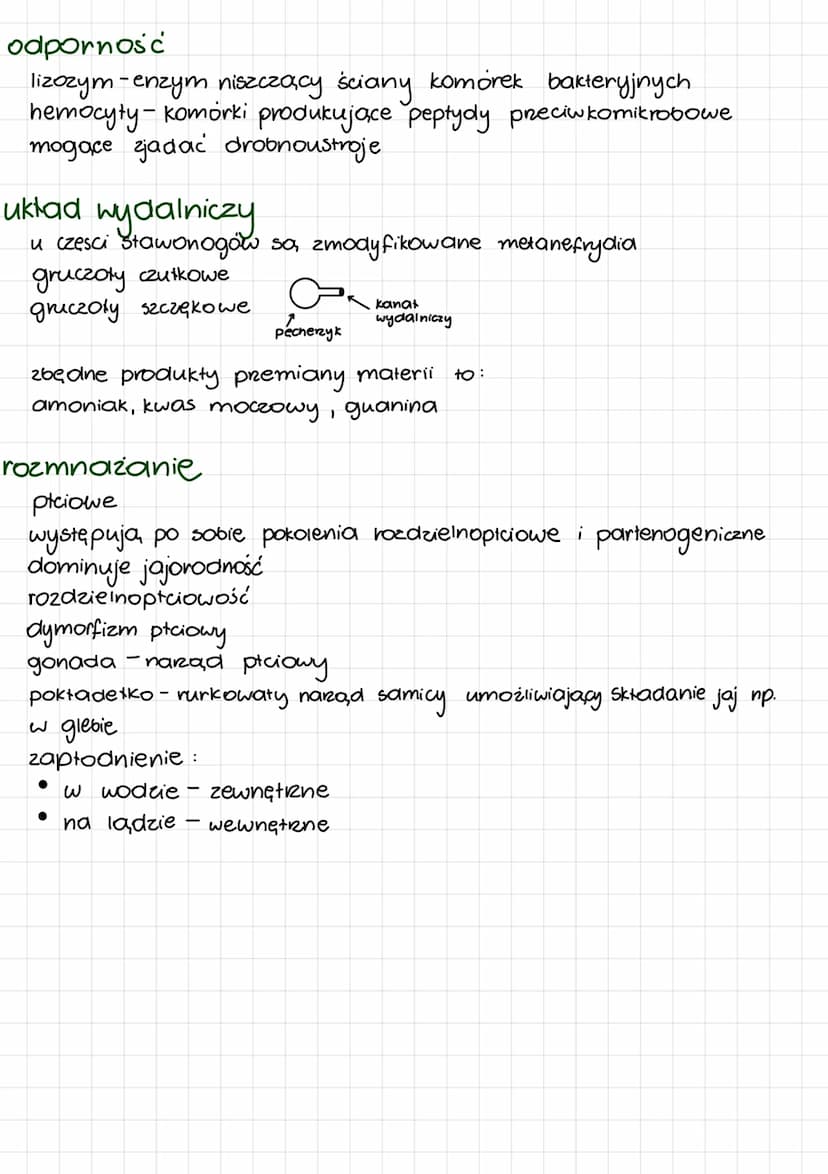 odporność
lizozym - enzym niszczący ściany komórek bakteryjnych
hemocyty - komórki produkujące peptydy przeciwkomikrobowe
mogące zjadać drobnoustroje
układ wydalniczy
u czesci stawonogów są zmodyfikowane metanefrydia
gruczoły czułkowe
gruczoły szczękowe
kanał
wydalniczy
pęcherzyk
zbędne produkty przemiany materii to:
amoniak, kwas moczowy, guanina
rozmnażanie
płciowe
występują po sobie pokolenia rozdzielnopłciowe i partenogeniczne
dominuje jajorodność
rozdzielnopłciowość
dymorfizm płciowy
gonada - narząd płciowy
pokładełko - rurkowaty narząd samicy umożliwiający składanie jaj np.
w glebie
zapłodnienie:
• w wodzie - zewnętrzne
• na lądzie - wewnętrzne